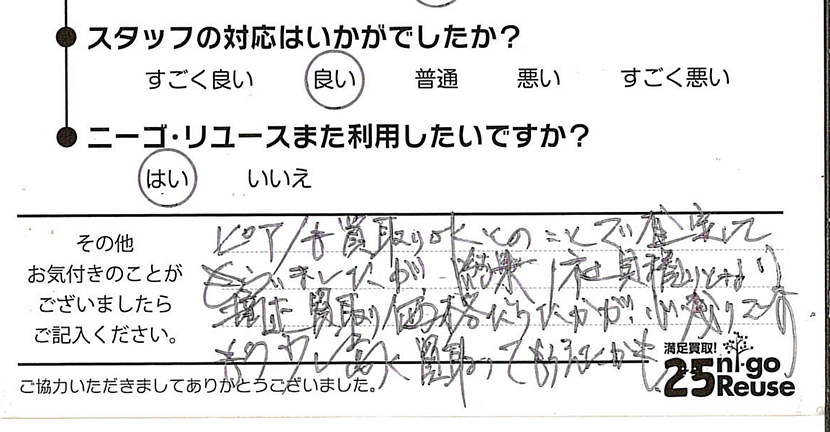 スタッフの対応はいかがでしたか?
すごく良い 良い 普通 悪い すごく悪い
ニーゴ・リユースまた利用したいですか?
はい いいえ
その他
お気付きのことが
ございましたら
ご記入ください。
ピアノも買取りOKとのことで査定して
ましたが 結果 1社見積りとなり
適正買取り価格だったかが、心残りです
もう少し高く買取ってもらえたかも
満足買取!
25 ni-go Reuse
ご協力いただきましてありがとうございました。